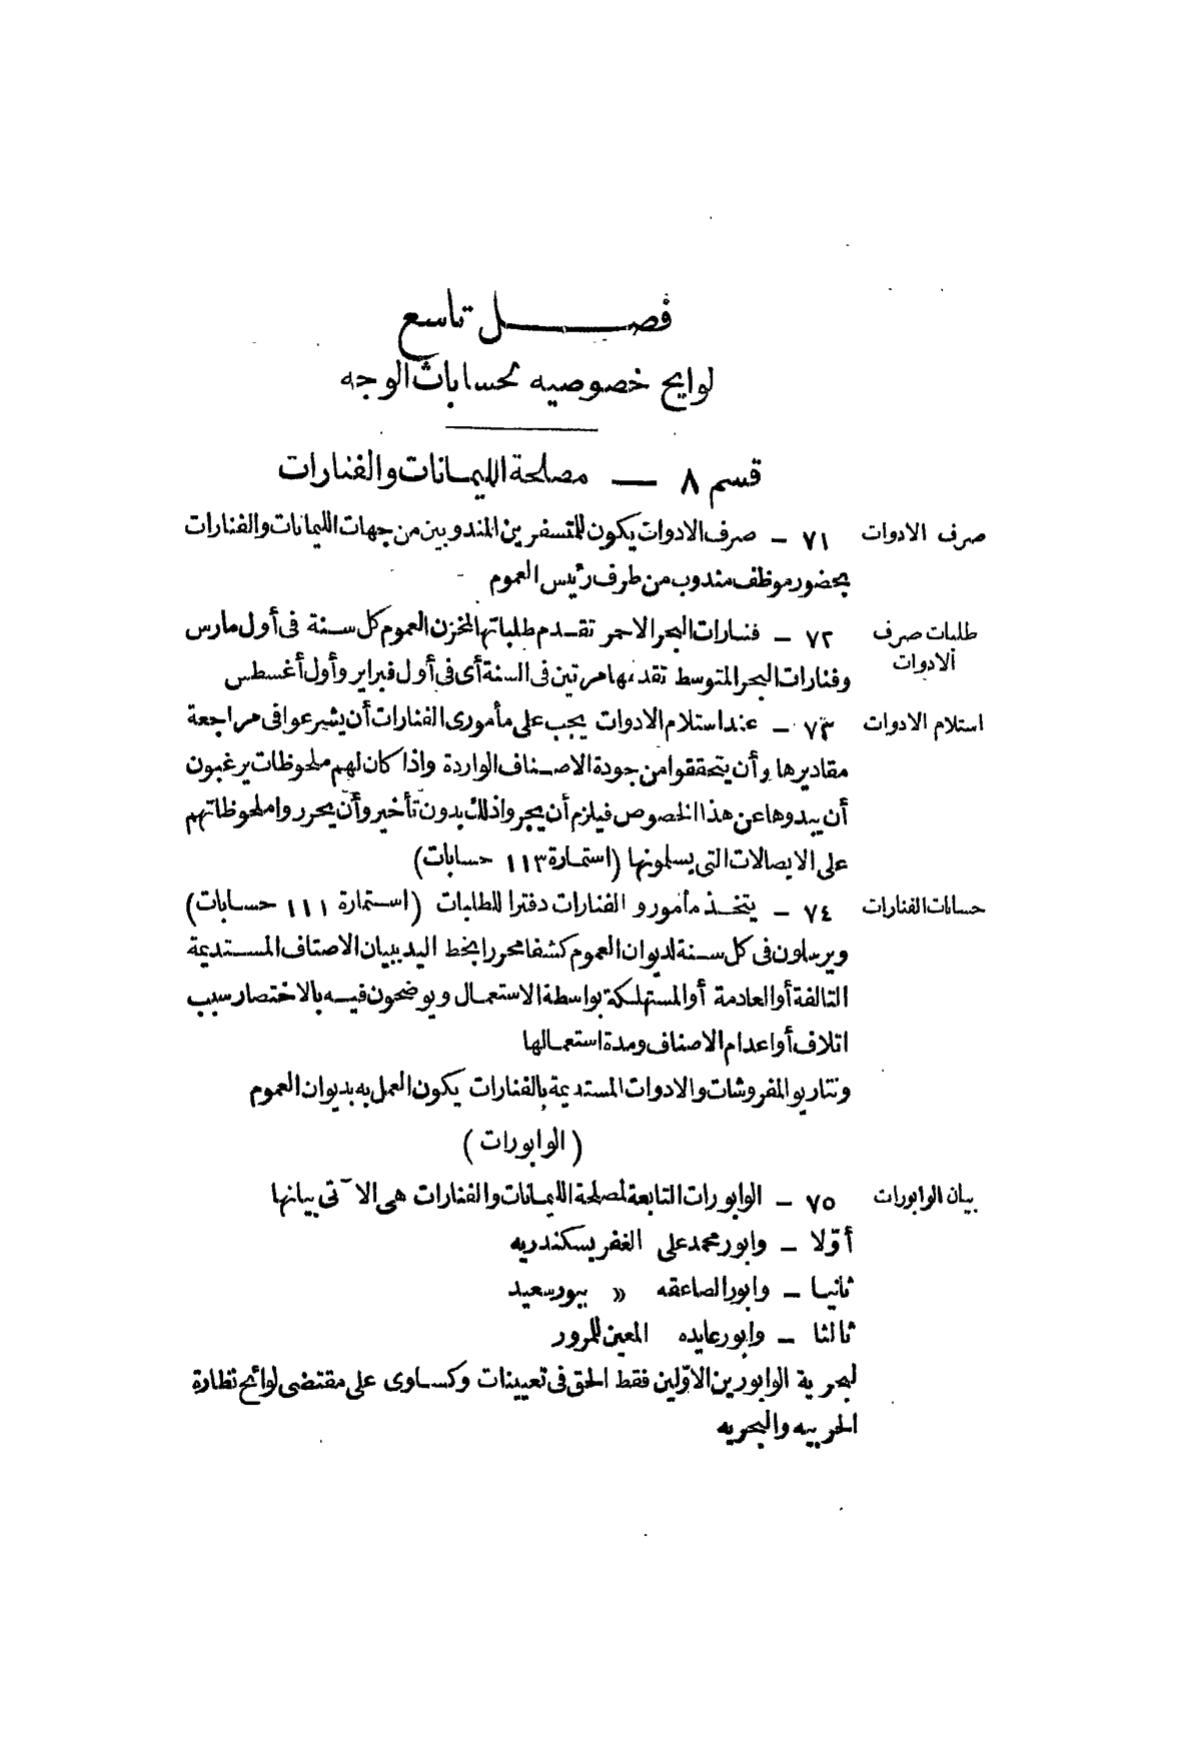 فصل تاسع
لوايح خصوصيه لحسابات الوجه
قسم ٨ — مصلحة الليمانات والفنارات
صرف الادوات ٧١ – صرف الادوات يكون للمتسفرين المندوبين من جهات الليمانات والفنارات
بحضور موظف مندوب من طرف رئيس العموم
طلبات صرف ٧٢ – فنارات البحر الاحمر تقدم طلباتها لمخزن العموم كل سنة فى أول مارس
الادوات وفنارات البحر المتوسط تقدمها مرتين فى السنة أى فى أول فبراير وأول أغسطس
استلام الادوات ٧٣ – عند استلام الادوات يجب على مأمورى الفنارات أن يشرعوا فى مراجعة
مقاديرها وأن يتحققوا من جودة الاصناف الواردة واذا كان لهم ملحوظات يرغبون
أن يبدوها عن هذا الخصوص فيلزم أن يجروا ذلك بدون تأخير وأن يحرروا ملحوظاتهم
على الايصالات التى يسلمونها (استمارة ١١٣ حسابات)
حسابات الفنارات ٧٤ – يتخذ مأمورو الفنارات دفترا للطلبات (استمارة ١١١ حسابات)
ويرسلون فى كل سنة لديوان العموم كشفا محررا بخط اليد ببيان الاصتاف المستديمة
التالفة أو العادمة أو المستهلكة بواسطة الاستعمال ويوضحون فيه بالاختصار سبب
اتلاف أو اعدام الاصناف ومدة استعمالها
ونتاريو المفروشات والادوات المستديمة بالفنارات يكون العمل به بديوان العموم
(الوابورات)
بيان الوابورات ٧٥ – الوابورات التابعة لمصلحة الليمانات والفنارات هى الآتى بيانها
أوّلا – وابور محمد على الغفر بسكندريه
ثانيا – وابور الصاعقه » ببورسعيد
ثالثا – وابور عايده المعين للمرور
لبحرية الوابورين الاوّلين فقط الحق فى تعيينات وكساوى على مقتضى لوائح نظارة
الحربيه والبحريه